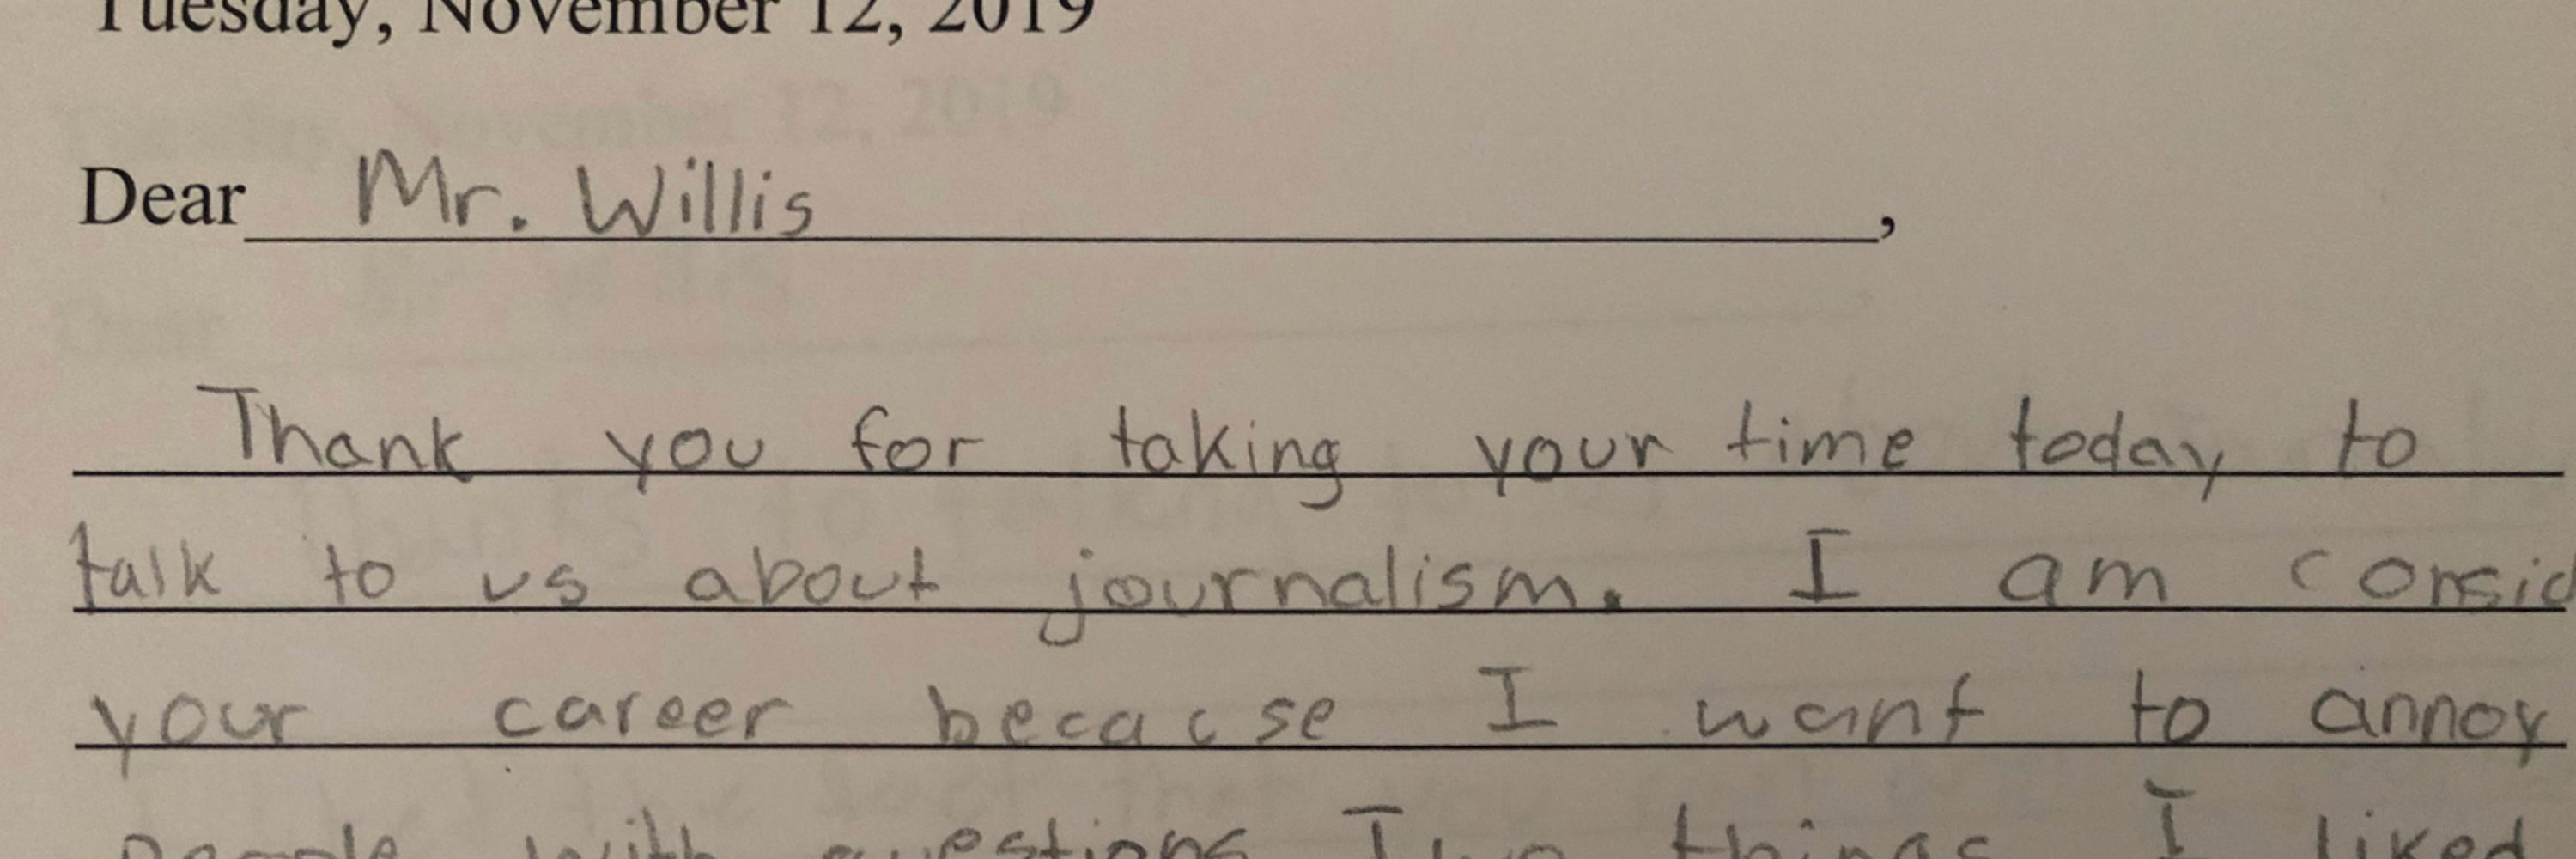 Tuesday, November 12, 2019
Dear Mr. Willis,
Thank you for taking your time today to
talk to us about journalism. I am consid
your career becacse I want to annoy
people with questions Two things I liked